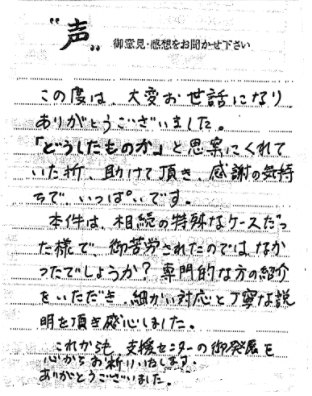 "声" 御意見・感想をお聞かせ下さい
この度は、大変お世話になり
ありがとうございました。
「どうしたものか」と思案にくれて
いた折、助けて頂き、感謝の気持
ちで、いっぱいです。
本件は、相続の特殊なケースだっ
た様で、御苦労されたのではなか
ったでしょうか？専門的な方の紹介
をいただき、細かい対応と丁寧な説
明を頂き安心しました。
これからも、支援センターの御発展を
心からお祈りいたします。
ありがとうございました。